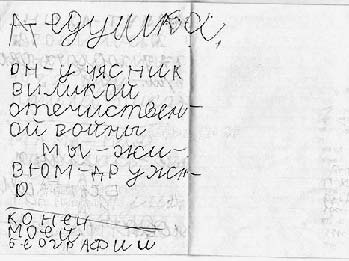 Д-едушка.
он-учясник
виликой
отечиствен-
ой войны
мы-жи-
вюм-дружн-
о
конец
моей
беографии